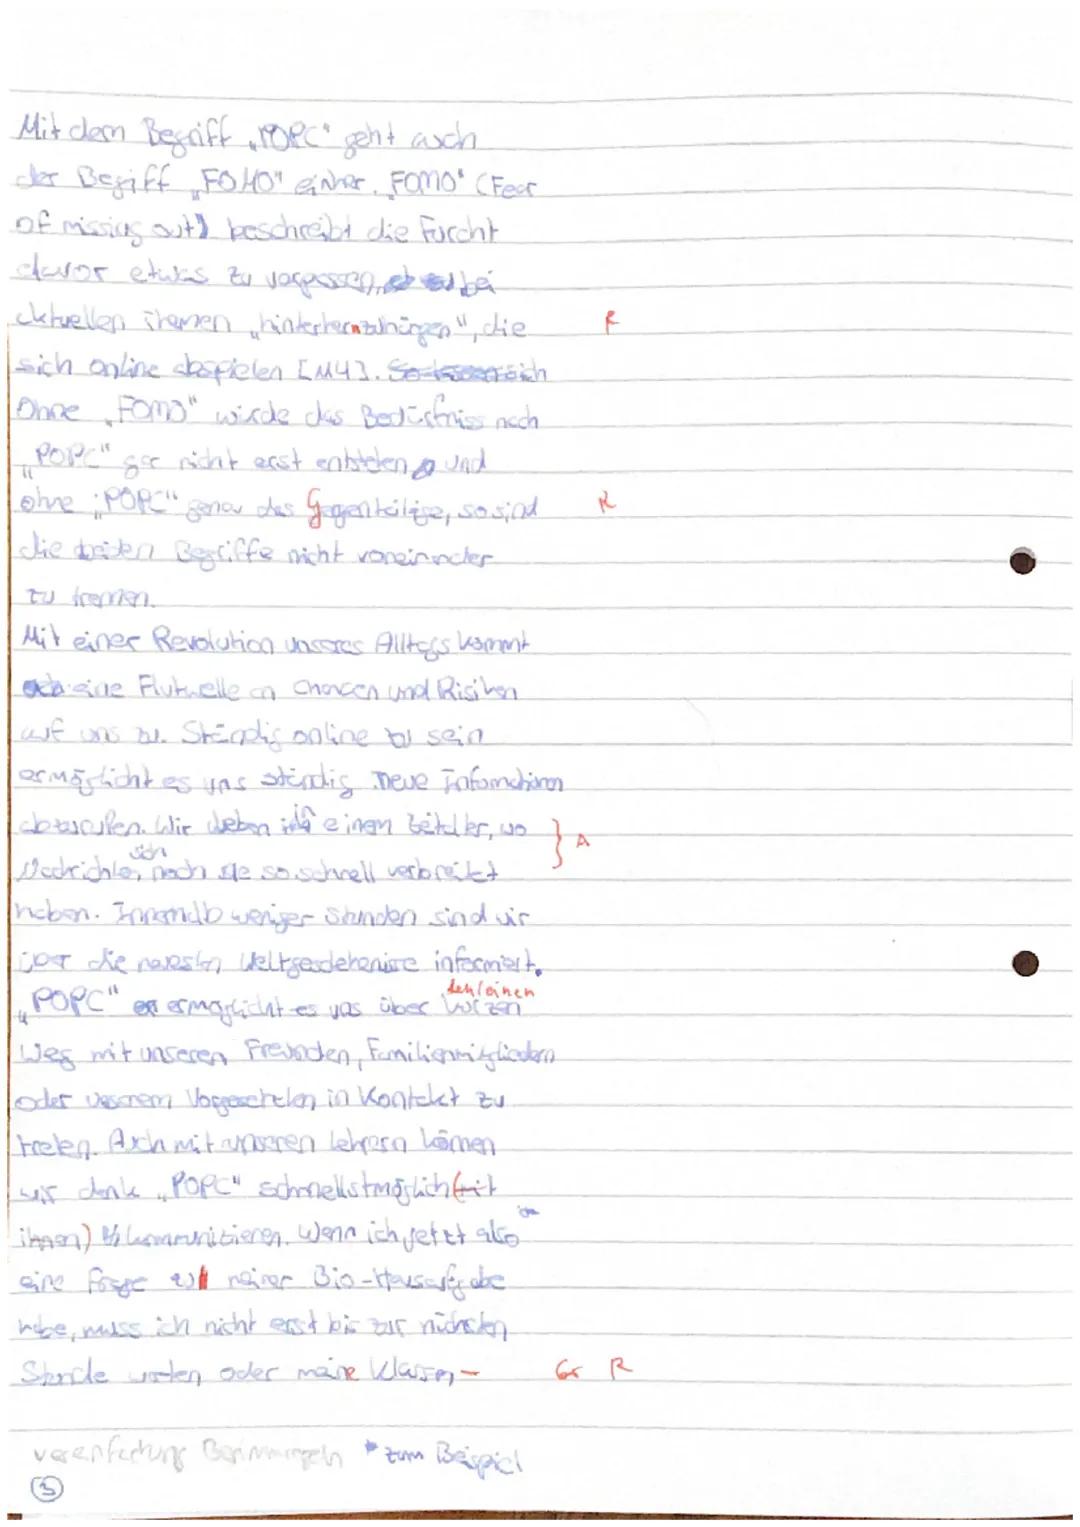 Mit dem Begriff „POPC" geht auch
der Begiff „FOMO" einher. „FOMO" (Fear
of missing out) beschreibt die Furcht
davor etwas zu verpassen, bei
aktuellen Themen „hinterherzuhängen", die
R
sich online abspielen [M4].
Ohne „FOMO" würde das Bedürfniss nach
„POPC" gar nicht erst entstehen und
ohne „POPC" genau das Gegenteilige, so sind
R
die beiden Begriffe nicht voneinander
zu trennen.
Mit einer Revolution unseres Alltags kommt
eine Flutwelle an Chancen und Risiken
auf uns zu. Ständig online zu sein
ermöglicht es uns ständig neue Informationen
abzurufen. Wir leben in einem Zeitalter, wo
A
sich
Nachrichten noch nie so schnell verbreitet
haben. Innerhalb weniger Stunden sind wir
über die neuesten Weltgeschehenisse informiert.
den/einen
„POPC" ermöglicht es uns über kurzen
Weg mit unseren Freunden, Familienmitgliedern
oder unserem Vorgesetzten in Kontakt zu
treten. Auch mit unseren Lehrern können
wir dank „POPC" schnellstmöglich (mit
ihnen) kommunizieren. Wenn ich jetzt also
eine Frage zu meiner Bio-Hausaufgabe
habe, muss ich nicht erst bis zur nächsten
Stunde warten oder meine Klassen-
Gr R
* zum Beispiel
3